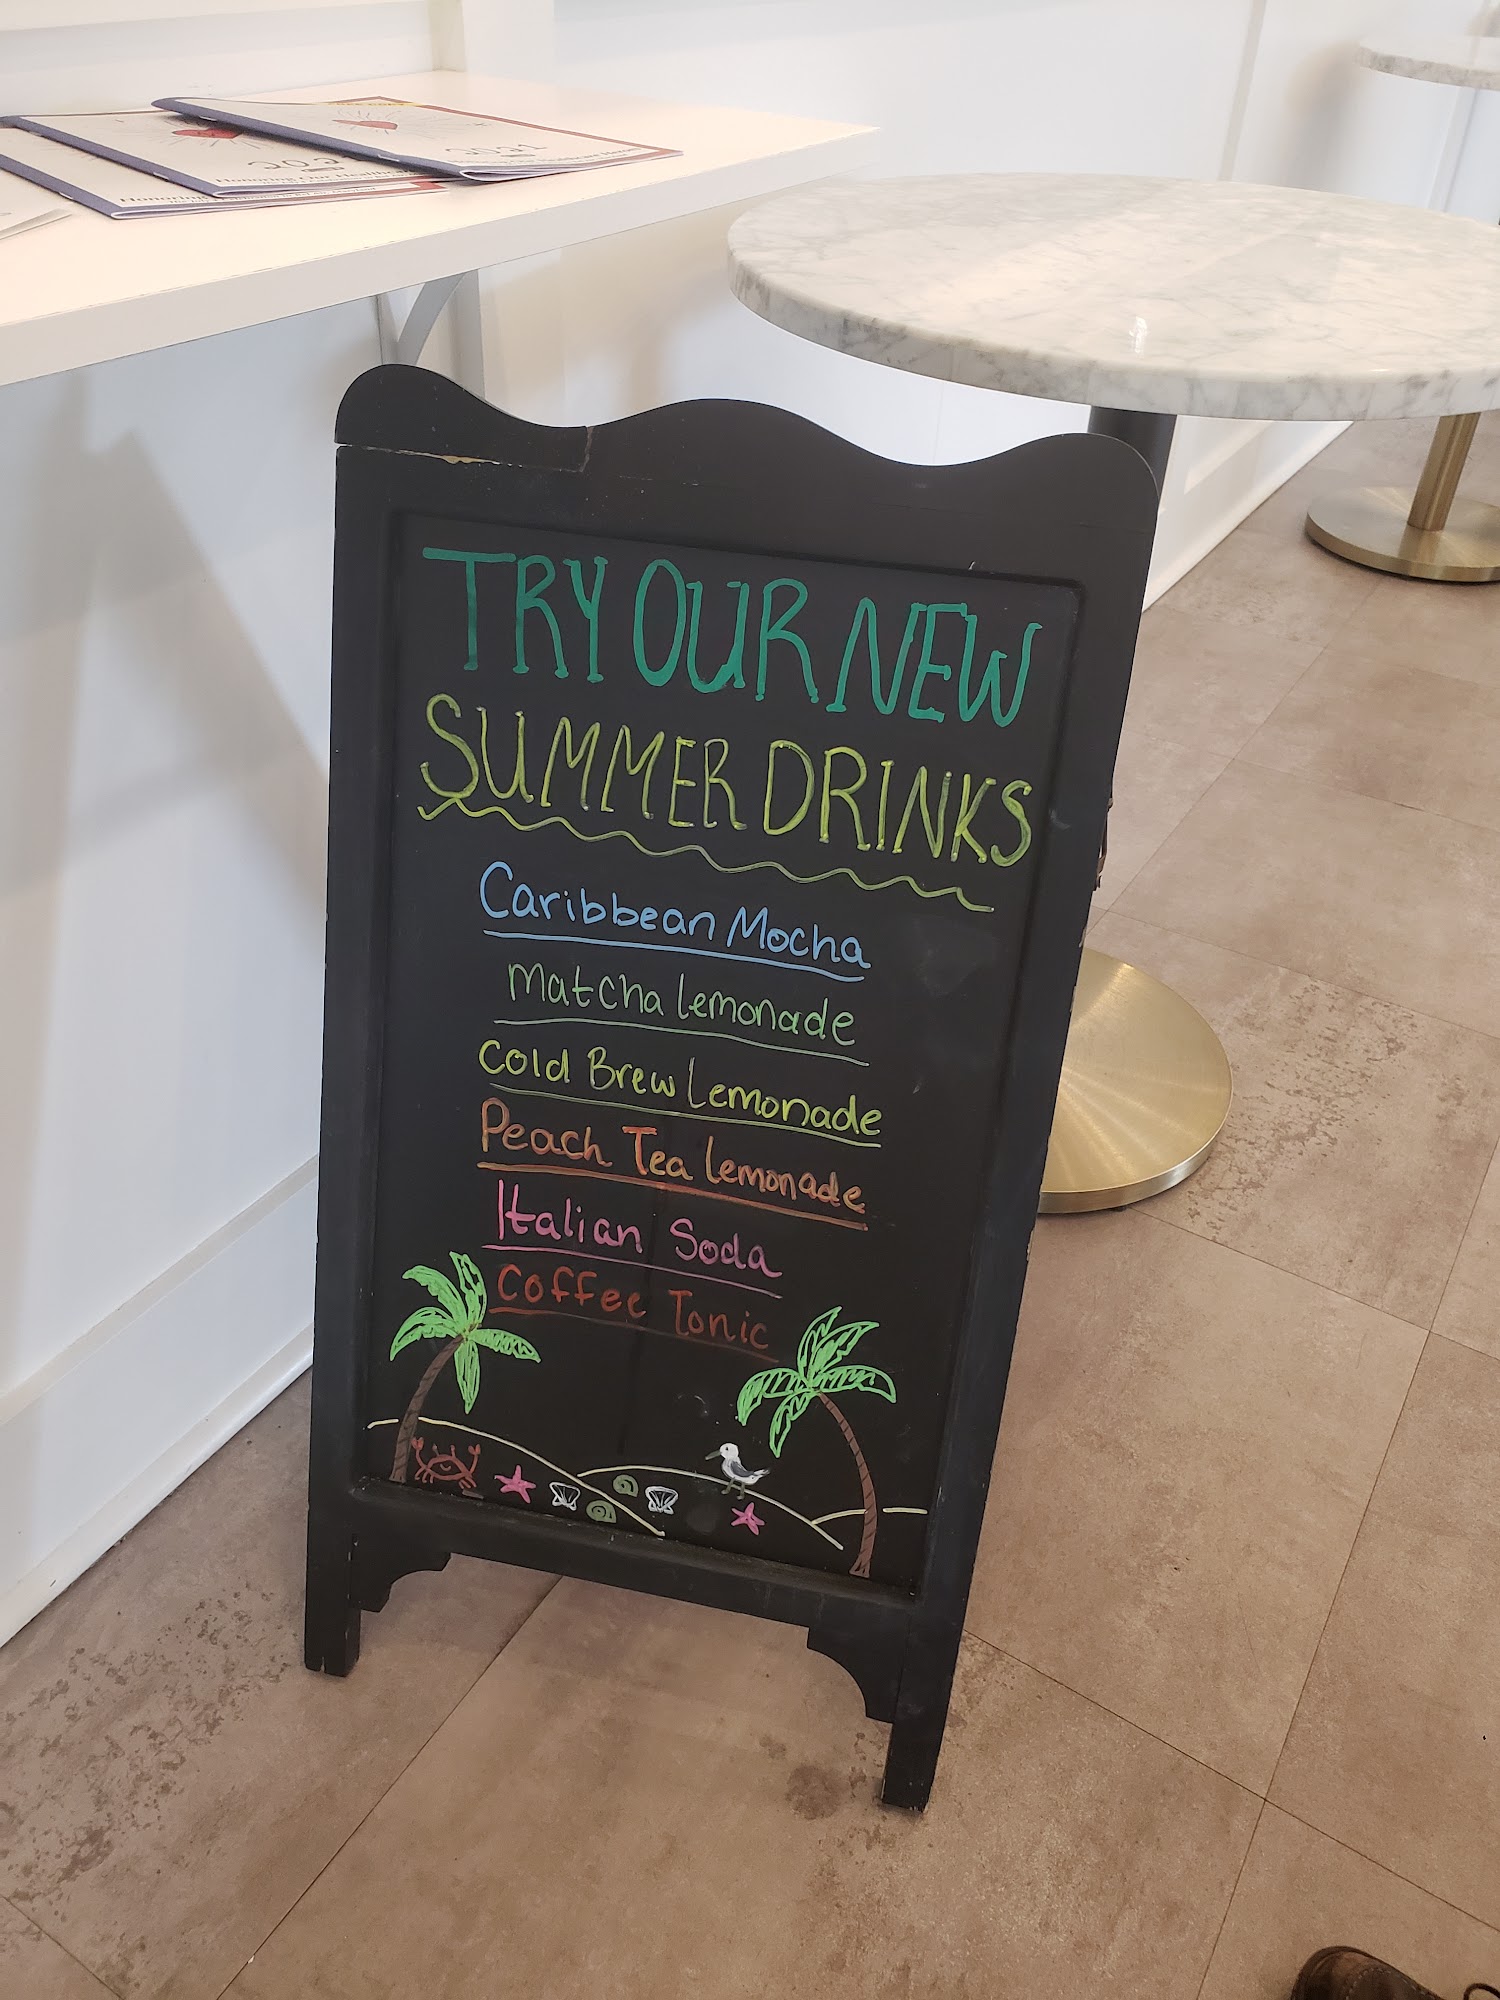 2021
Honoring Our Healthcare
Honoring
2021
TRY OUR NEW
SUMMER DRINKS
Caribbean Mocha
Matcha lemonade
Cold Brew Lemonade
Peach Tea lemonade
Italian Soda
Coffee Tonic